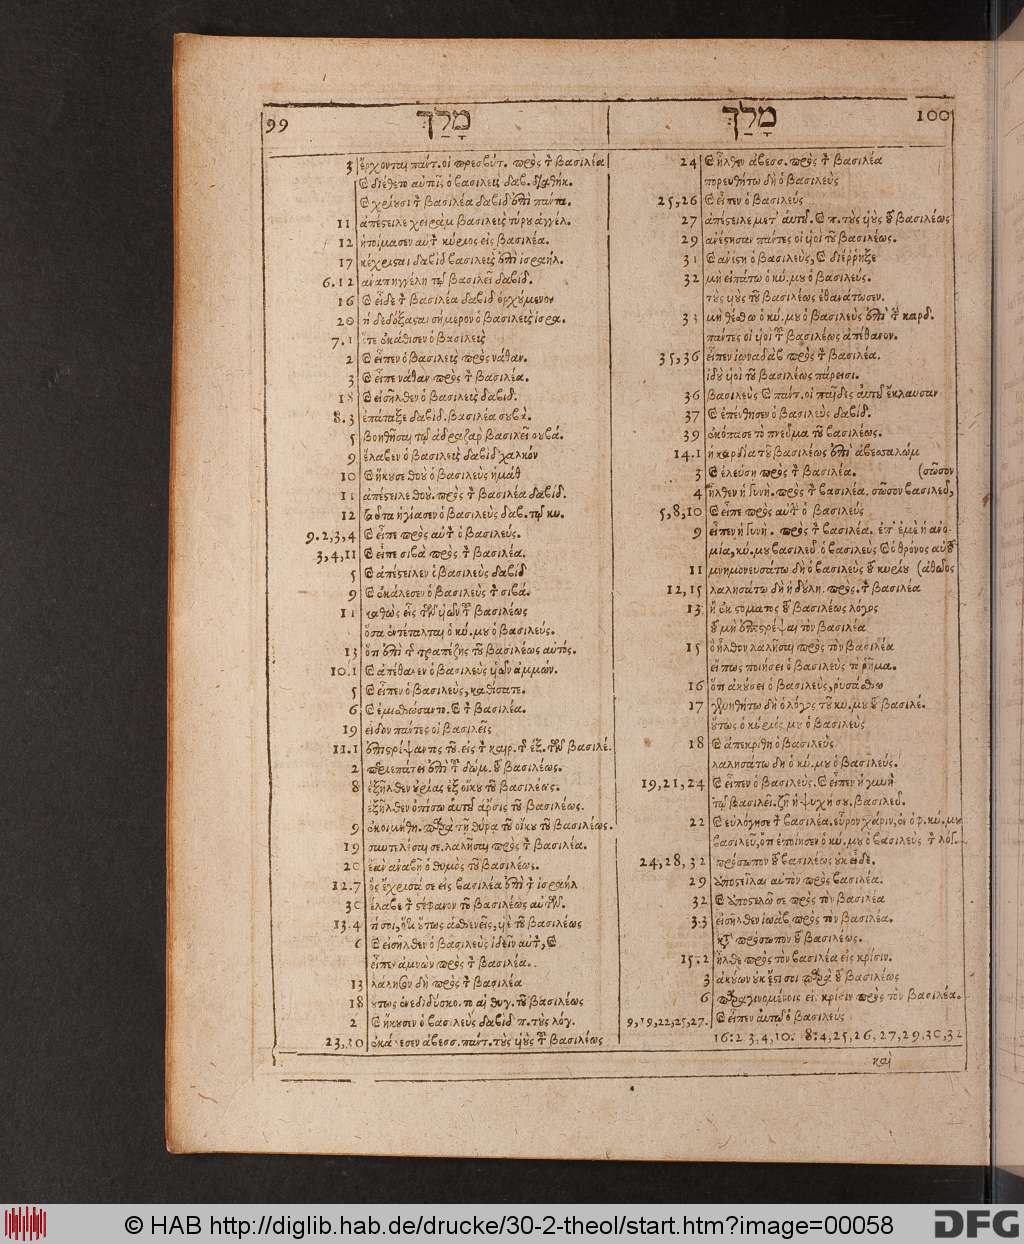 99 מָלַךְ
3 ἔρχονται πάντ. οἱ πρεσβύτ. πρὸς τ βασιλέα
καὶ διέθετο αὐτοῖς ὁ βασιλεὺς δαβ. διαθήκ.
καὶ χρίουσι τ βασιλέα δαβὶδ ἐπὶ πάντα.
11 ἀπέστειλε χειρὰμ βασιλεὺς τύρου ἀγγέλ.
12 ἡτοίμασεν αὐτ κύριος εἰς βασιλέα.
17 κέχρισται δαβὶδ βασιλεὺς ἐπὶ ἰσραήλ.
6.12 ἀναπηγγέλη τῷ βασιλεῖ δαβίδ.
16 καὶ εἶδε τ βασιλέα δαβὶδ ὀρχούμενον
20 τί δεδόξασται σήμερον ὁ βασιλεὺς ἰσρα.
7.1 ὅτε ἐκάθισεν ὁ βασιλεὺς
2 καὶ εἶπεν ὁ βασιλεὺς πρὸς νάθαν.
3 καὶ εἶπε νάθαν πρὸς τ βασιλέα.
18 καὶ εἰσῆλθεν ὁ βασιλεὺς δαβίδ.
8.3 ἐπάταξε δαβίδ. βασιλέα σουβά.
5 βοηθῆσαι τῷ ἀδρααζὰρ βασιλεῖ σουβά.
9 ἔλαβεν ὁ βασιλεὺς δαβὶδ χαλκόν
10 καὶ ἤκουσε θοὺ ὁ βασιλεὺς ἡμάθ
11 ἀπέστειλε θοὺ. πρὸς τ βασιλέα δαβίδ.
12 ταῦτα ἡγίασεν ὁ βασιλεὺς δαβ. τῷ κυ.
9.2,3,4 καὶ εἶπε πρὸς αὐτ ὁ βασιλεύς.
3,4,11 καὶ εἶπε σιβὰ πρὸς τ βασιλέα.
5 καὶ ἀπέστειλεν ὁ βασιλεὺς δαβὶδ
9 καὶ ἐκάλεσεν ὁ βασιλεὺς τ σιβά.
11 καθὼς εἷς τῶν υἱῶν τ βασιλέως
ὅσα ἐντέταλται ὁ κύ. μου ὁ βασιλεύς.
13 ὅτι ἐπὶ τ τραπέζης τοῦ βασιλέως αὐτός.
10.1 καὶ ἀπέθανεν ὁ βασιλεὺς υἱῶν ἀμμών.
5 καὶ εἶπεν ὁ βασιλεὺς, καθίσατε.
6 καὶ ἐμισθώσαντο. καὶ τ βασιλέα.
19 εἶδον πάντες οἱ βασιλεῖς
11.1 ἐπιστρέψαντος τοῦ. εἰς τ καιρ. τ ἐξ. τῶν βασιλέ.
2 περιεπάτει ἐπὶ τ δώμ. τοῦ βασιλέως.
8 ἐξῆλθεν οὐρίας ἐξ οἴκου τοῦ βασιλέως.
ἐξῆλθεν ὀπίσω αὐτοῦ ἄρσις τοῦ βασιλέως.
9 ἐκοιμήθη. παρὰ τῇ θύρα τοῦ οἴκου τοῦ βασιλέως.
19 συντελέσαι σε. λαλῆσαι πρὸς τ βασιλέα.
20 ἐὰν ἀναβῇ ὁ θυμὸς τοῦ βασιλέως.
12.7 ὃς ἔχρισά σε εἰς βασιλέα ἐπὶ τ ἰσραήλ
30 ἔλαβε τ στέφανον τοῦ βασιλέως αὐτῶν.
13.4 τί σοι, ὅτι οὕτως ἀσθενεῖς, υἱὲ τοῦ βασιλέως
6 καὶ εἰσῆλθεν ὁ βασιλεὺς ἰδεῖν αὐτ, καὶ
εἶπεν ἀμνὼν πρὸς τ βασιλέα.
13 λάλησον δὴ πρὸς τ βασιλέα
18 οὕτως ἐνεδιδύσκο. το αἱ θυγ. τοῦ βασιλέως
2 καὶ ἤκουσεν ὁ βασιλεὺς δαβὶδ π. τοὺς λόγ.
23,30 ἐκάλεσεν ἀβεσσ. πάντ. τοὺς υἱοὺς τ βασιλέως
מָלַךְ 100
24 καὶ ἦλθεν ἀβεσσ. πρὸς τ βασιλέα
πορευθήτω δὴ ὁ βασιλεὺς
25,26 καὶ εἶπεν ὁ βασιλεύς
27 ἀπέστειλε μετ' αὐτοῦ. καὶ π. τοὺς υἱοὺς τοῦ βασιλέως
29 ἀνέστησαν πάντες οἱ υἱοὶ τοῦ βασιλέως.
31 καὶ ἀνέστη ὁ βασιλεὺς, καὶ διέῤῥηξε
32 μὴ εἰπάτω ὁ κύ. μου ὁ βασιλεύς.
τοὺς υἱοὺς τοῦ βασιλέως ἐθανάτωσεν.
33 μὴ θέσθω ὁ κύ. μου ὁ βασιλεὺς ἐπὶ τ καρδ.
πάντες οἱ υἱοὶ τ βασιλέως ἀπέθανον.
35,36 εἶπεν ἰωναδὰβ πρὸς τ βασιλέα.
ἰδοὺ υἱοὶ τοῦ βασιλέως πάρεισι.
36 βασιλεὺς καὶ πάντ. οἱ παῖδες αὐτοῦ ἔκλαυσαν
37 καὶ ἐπένθησεν ὁ βασιλεὺς δαβίδ.
39 ἐκόπασε τὸ πνεῦμα τοῦ βασιλέως.
14.1 ἡ καρδία τοῦ βασιλέως ἐπὶ ἀβεσσαλώμ
3 καὶ ἐλεύσῃ πρὸς τ βασιλέα. (σῶσον
4 ἦλθεν ἡ γυνὴ. πρὸς τ βασιλέα. σῶσον βασιλεῦ,
5,8,10 καὶ εἶπε πρὸς αὐτ ὁ βασιλεύς
9 εἶπεν ἡ γυνὴ. πρὸς τ βασιλέα. ἐπ' ἐμὲ ἡ ἀνο-
μία, κύ. μου βασιλεῦ ὁ βασιλεὺς καὶ ὁ θρόνος αὐτοῦ
11 μνημονευσάτω δὴ ὁ βασιλεὺς τοῦ κυρίου (ἀθῶος
12,15 λαλησάτω δὴ ἡ δούλη. πρὸς. τ βασιλέα
13 ἢ ἐκ στόματος τοῦ βασιλέως λόγος
τοῦ μὴ ἐπιστρέψαι τὸν βασιλέα
15 ὃ ἦλθον λαλῆσαι πρὸς τὸν βασιλέα
εἴ πως ποιήσει ὁ βασιλεὺς τὸ ῥῆμα.
16 ὅτι ἀκούσει ὁ βασιλεὺς, ῥυσάσθω
17 γενηθήτω δὴ ὁ λόγος τοῦ κυ. μου τοῦ βασιλέ.
οὕτως ὁ κύριός μου ὁ βασιλεὺς
18 καὶ ἀπεκρίθη ὁ βασιλεὺς
λαλησάτω δὴ ὁ κύ. μου ὁ βασιλεύς.
19,21,24 καὶ εἶπεν ὁ βασιλεὺς. καὶ εἶπεν ἡ γυνὴ
τῷ βασιλεῖ. ζῇ ἡ ψυχή σου, βασιλεῦ.
22 καὶ εὐλόγησε τ βασιλέα. εὗρον χάριν, ἐν ὀφ. κύ. μου
βασιλεῦ, ὅτι ἐποίησεν ὁ κύ. μου ὁ βασιλεὺς τ λόγ.
24,28,32 πρόσωπον τοῦ βασιλέως οὐκ εἶδε.
29 ἀποστεῖλαι αὐτὸν πρὸς βασιλέα.
32 καὶ ἀποστελῶ σε πρὸς τὸν βασιλέα
33 εἰσῆλθεν ἰωὰβ πρὸς τὸν βασιλέα.
κατὰ πρόσωπον τοῦ βασιλέως.
15.2 ἦλθε πρὸς τὸν βασιλέα εἰς κρίσιν.
3 ἀκούων οὐκ ἔστι σοι παρὰ τοῦ βασιλέως
6 παραγινομένοις εἰς κρίσιν πρὸς τὸν βασιλέα.
9,19,22,25,27. καὶ εἶπεν αὐτῷ ὁ βασιλεὺς
16:2 3,4,10. 8:4,25,26,27,29,30,32
καὶ
© HAB http://diglib.hab.de/drucke/30-2-theol/start.htm?image=00058
DFG